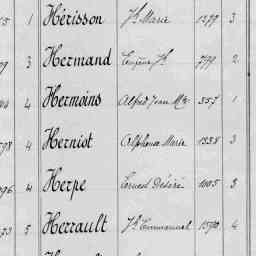 15 1 Hérisson Jh Marie 1299 3
3 Hermand Eugène Jh 799 2
4 Hermoins Alfred Jean Mie 357 1
798 4 Herniot Alphonse Marie 1338 3
096 4 Herpe Ernest Désiré 1005 3
5 Herrault Jh Emmanuel 1590 4